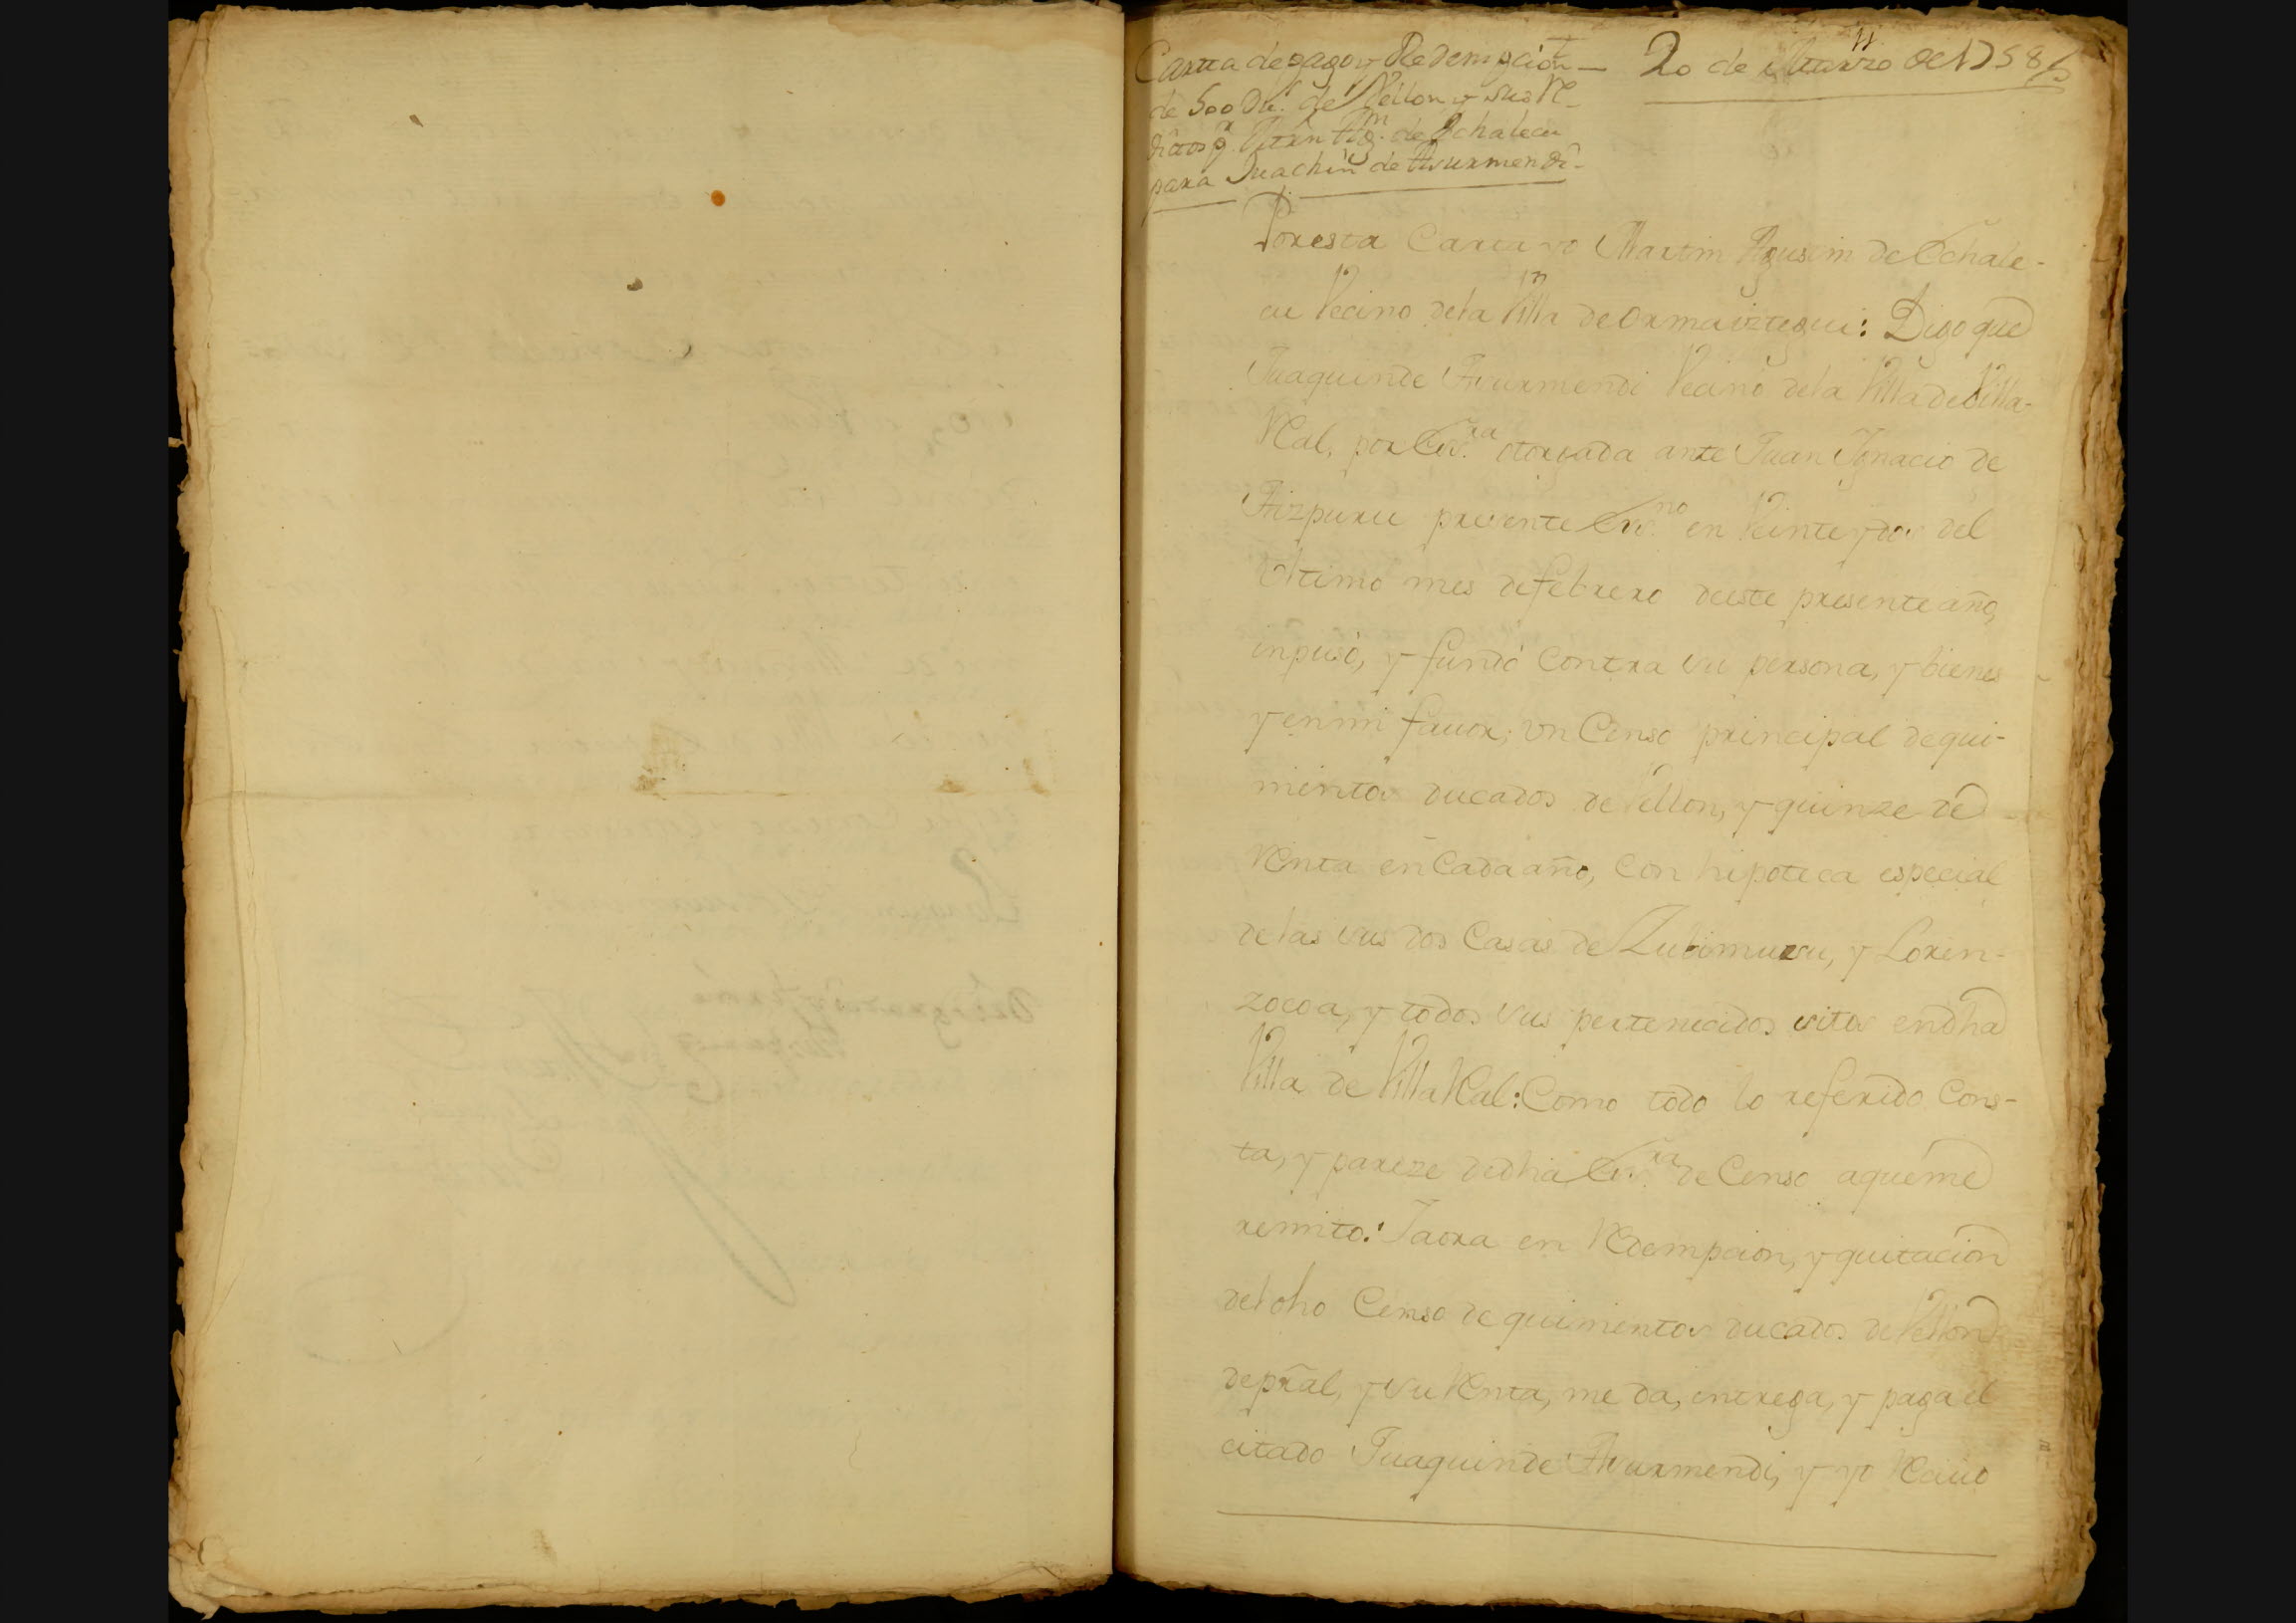 Carta de pago y Redempcion —
20 de Marzo de 1758
de 500 Du.s de Vellon y sus Re-
ditos p.r Mrn Ag.n de Echalecu
para Juachin de Asurmendi.
Por esta Carta yo Martin Agustin de Echale-
cu Vecino de la Villa de Ormaiztegui: Digo que
Juaquin de Asurmendi Vecino de la Villa de Villa-
Real, por Es.ra otorgada ante Juan Ignacio de
Aizpuru presente Es.no en Veinte y dos del
Vltimo mes de febrero de este presente año,
inpusó, y fundó contra su persona, y bienes
y en mi fauor, vn Censo principal de qui-
nientos ducados de Vellon, y quinze de
Renta en Cada año, con hipoteca especial
de las sus dos Casas de Zubimusu, y Loren-
zocoa, y todos sus pertenecidos sitos en dha
Villa de Villa Real: Como todo lo referido Cons-
ta, y pareze de dha Es.ra de Censo aque me
remito: Iaora en Redempcion, y quitacion
del dho Censo de quinientos ducados de Vellon
de pral, y su Renta, me da, entrega, y paga el
citado Juaquin de Asurmendi, y yo Reciuo